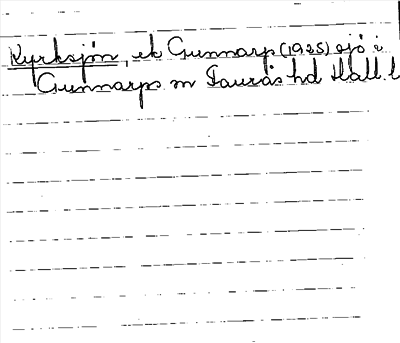 Kyrksjön, ek Gunnarp (1925) sjö i
Gunnarps sn Faurås hd Hall. l